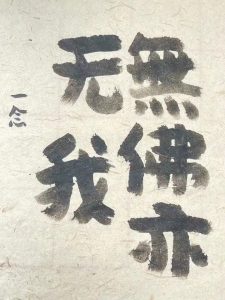 無佛亦
无我
一念